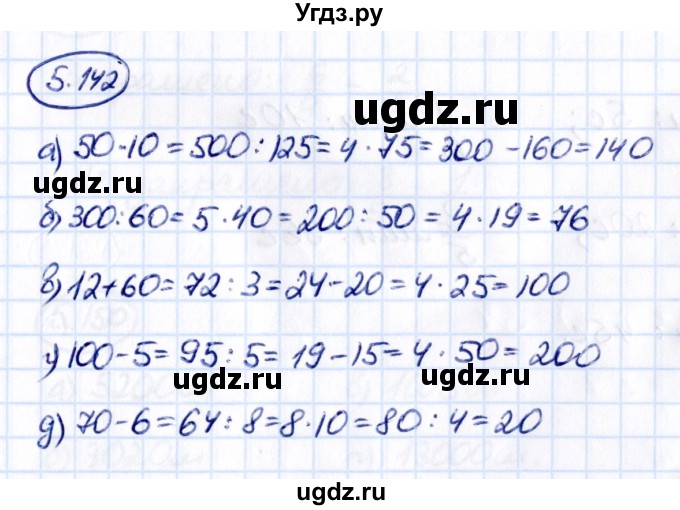 Угдз.ру
5.142
ugdz.ru
а) 50·10=500:125=4·75=300-160=140
ugdz.ru
б) 300:60=5·40=200:50=4·19=76
в) 12+60=72:3=24-20=4·25=100
г) 100-5=95:5=19-15=4·50=200
ugdz.ru ugdz.ru
д) 70-6=64:8=8·10=80:4=20
ugdz.ru